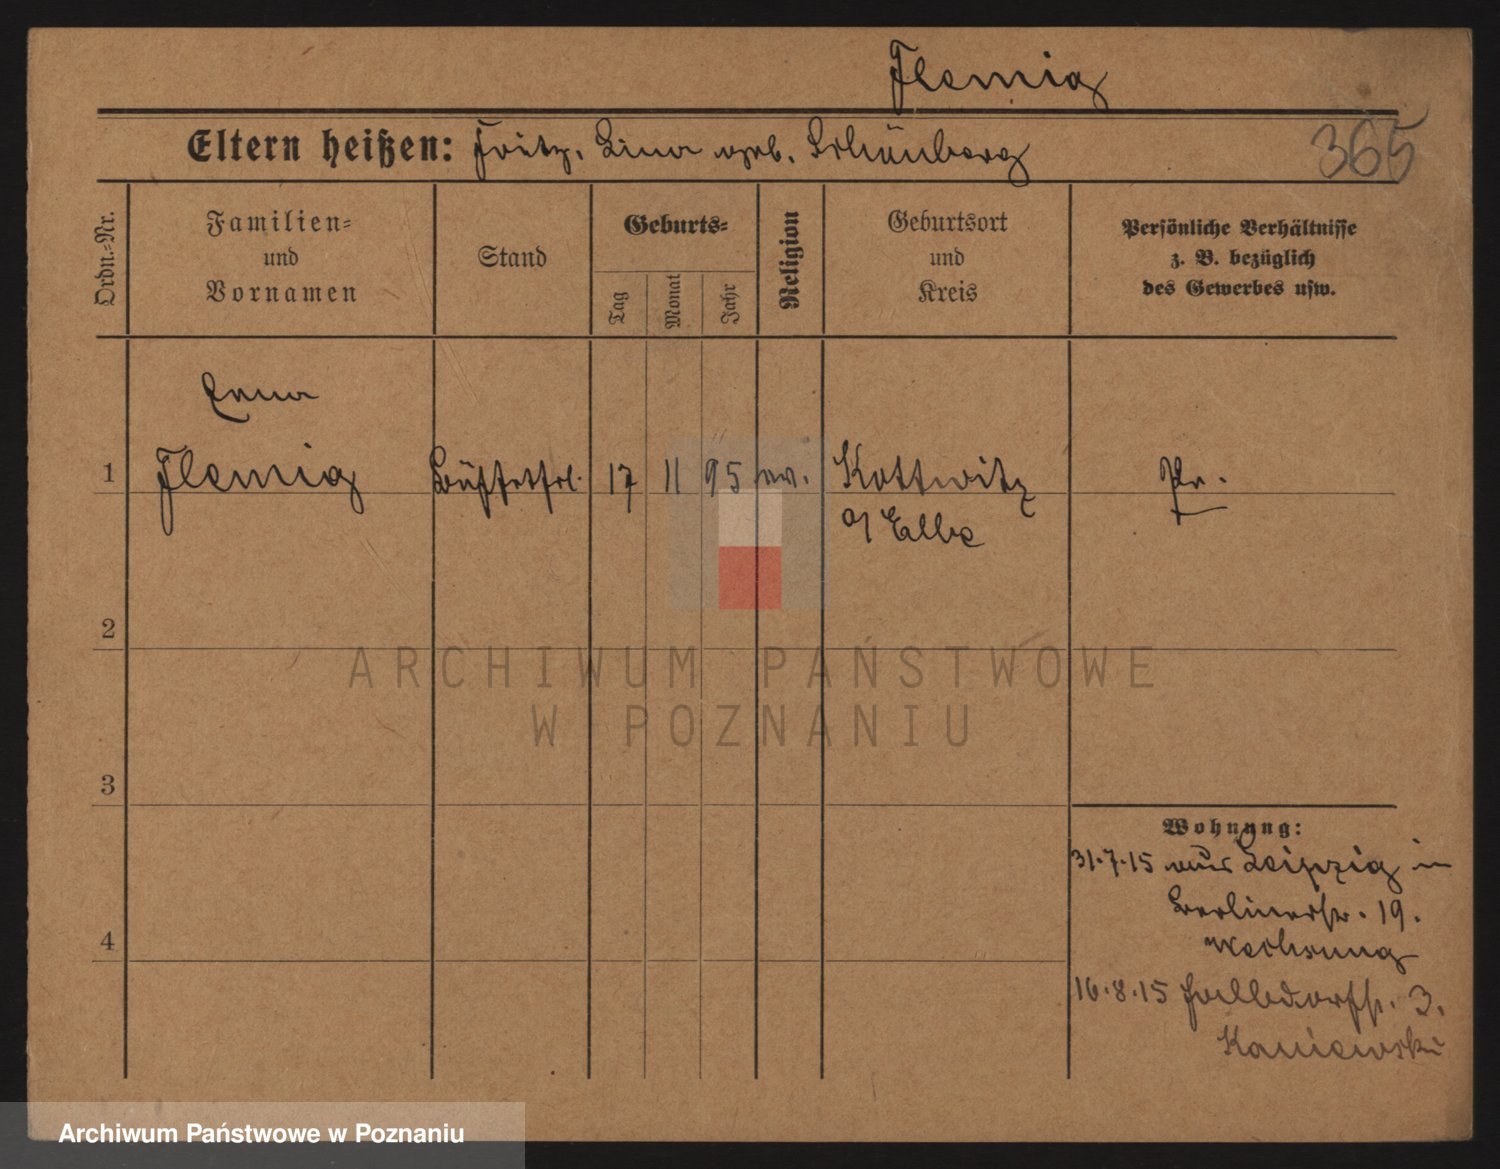 Flemig
Eltern heißen: Fritz, Lina geb. Schönberg
365
Ordn.-Nr.
Familien-
und
Vornamen
Stand
Geburts-
Tag
Monat
Jahr
Religion
Geburtsort
und
Kreis
Persönliche Verhältnisse
z. B. bezüglich
des Gewerbes usw.
Erna
1 Flemig Büffetfrl. 17 11 95 ev. Kottwitz Pr.
a/ Elbe
2
ARCHIWUM PAŃSTWOWE
W POZNANIU
3
Wohnung:
31.7.15 aus Leipzig in
Berlinerstr. 19.
4
16.8.15 3.
Kaniewski
Archiwum Państwowe w Poznaniu